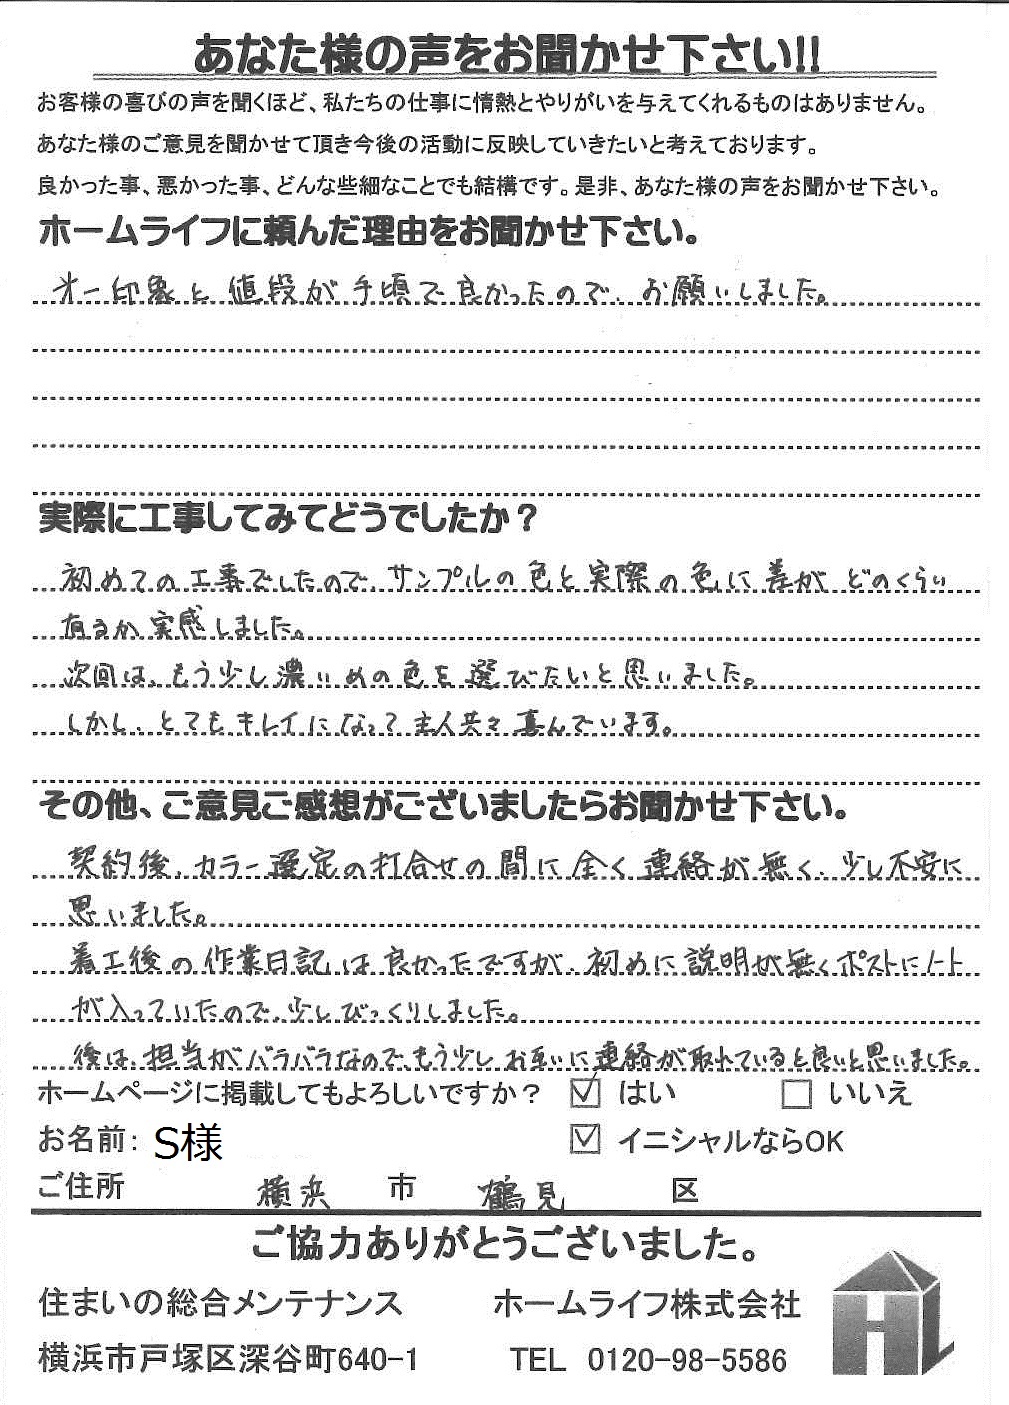 あなた様の声をお聞かせ下さい!!
お客様の喜びの声を聞くほど、私たちの仕事に情熱とやりがいを与えてくれるものはありません。
あなた様のご意見を聞かせて頂き今後の活動に反映していきたいと考えております。
良かった事、悪かった事、どんな些細なことでも結構です。是非、あなた様の声をお聞かせ下さい。
ホームライフに頼んだ理由をお聞かせ下さい。
才一印象と値段が手頃で良かったので、お願いしました。
実際に工事してみてどうでしたか？
初めての工事でしたので、サンプルの色と実際の色に差がどのくらい
有るか実感しました。
次回は、もう少し濃いめの色を選びたいと思いました。
しかし、とてもキレイになって主人共々喜んでいます。
その他、ご意見ご感想がございましたらお聞かせ下さい。
契約後、カラー選定の打合せの間に全く連絡が無く、少し不安に
思いました。
着工後の作業日記は良かったですが、初めに説明が無くポストにノート
が入っていたので、少しびっくりしました。
後は、担当がバラバラなので、もう少しお互いに連絡が取れていると良いと思いました。
ホームページに掲載してもよろしいですか？ ☑ はい □ いいえ
お名前: S様 ☑ イニシャルならOK
ご住所 横浜 市 鶴見 区
ご協力ありがとうございました。
住まいの総合メンテナンス ホームライフ株式会社
横浜市戸塚区深谷町640-1 TEL 0120-98-5586
HL